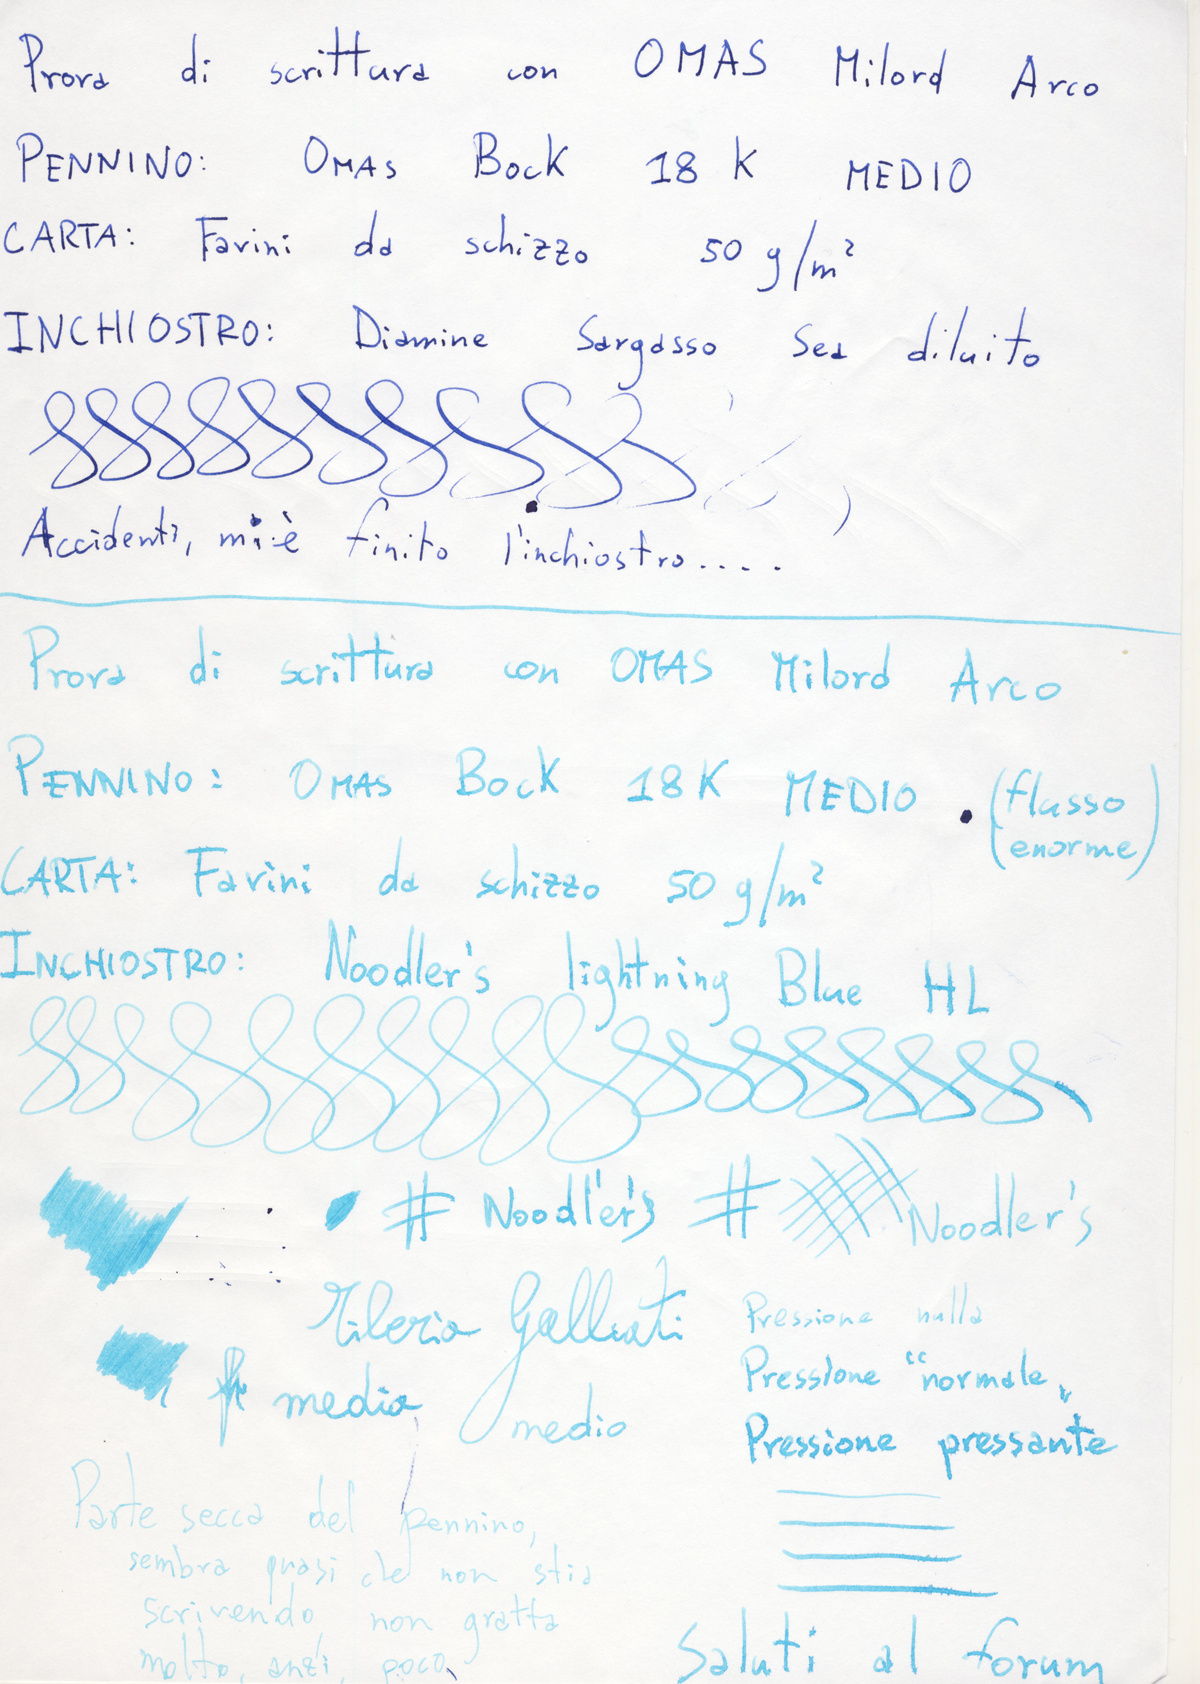 Prova di scrittura con OMAS Milord Arco
PENNINO: OMAS Bock 18 K MEDIO
CARTA: Favini da schizzo 50 g/m²
INCHIOSTRO: Diamine Sargasso Sea diluito
Accidenti, mi è finito l'inchiostro....
Prova di scrittura con OMAS Milord Arco
PENNINO: OMAS Bock 18K MEDIO (flusso
enorme)
CARTA: Favini da schizzo 50 g/m²
INCHIOSTRO: Noodler's lightning Blue HL
# Noodler's # Noodler's
Pressione nulla
Pressione "normale"
media
medio
Pressione pressante
Parte secca del pennino,
sembra quasi che non stia
scrivendo, non gratta
molto, anzi, poco
Saluti al forum